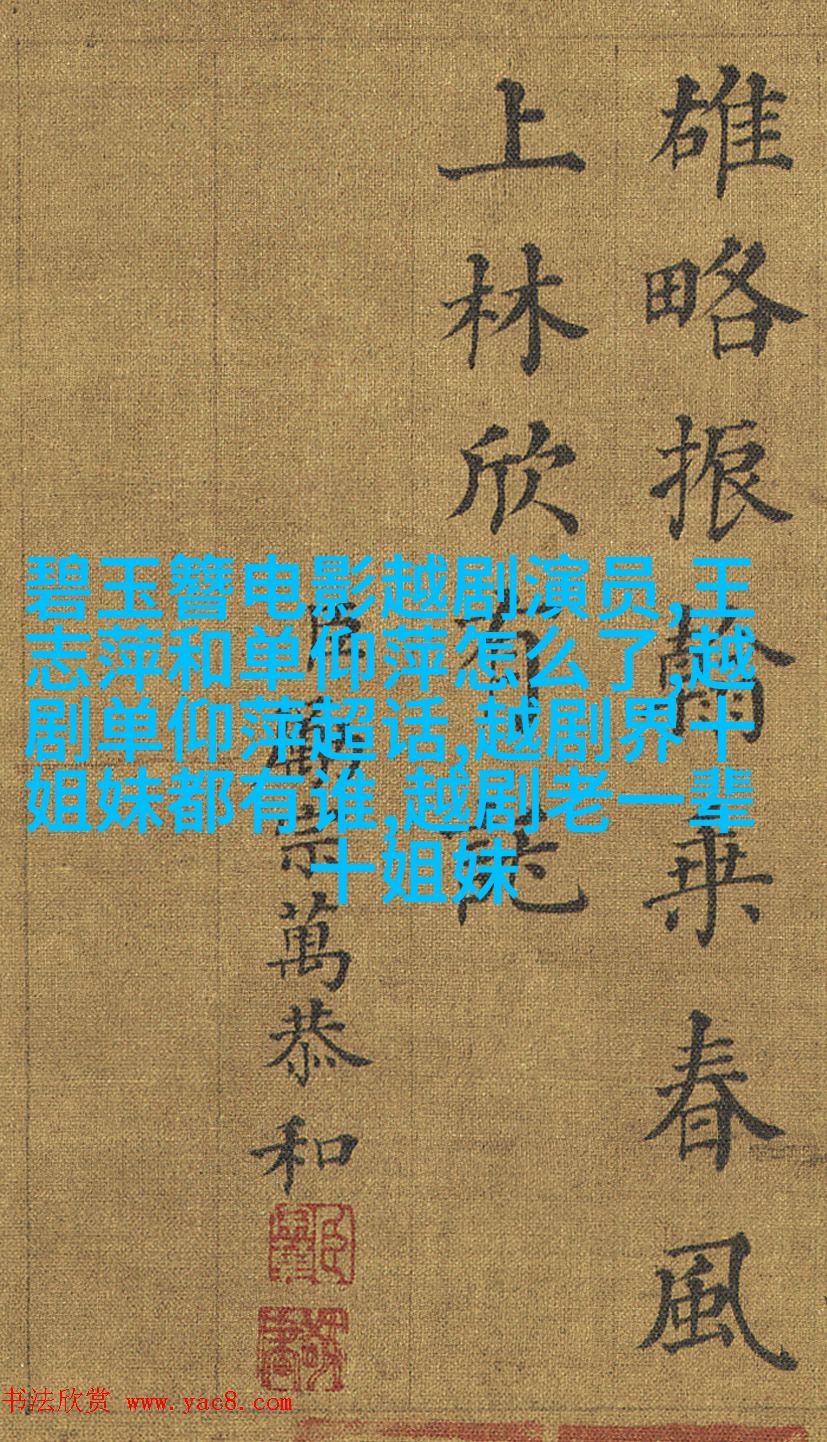 雄略振乗春風
上林欣有
臣勵宗萬恭和
碧玉簪电影越剧演员,王
志萍和单仰萍怎么了,越
剧单仰萍超话,越剧界十
姐妹都有谁,越剧老一辈
十姐妹
书法欣赏 www.yac8.com